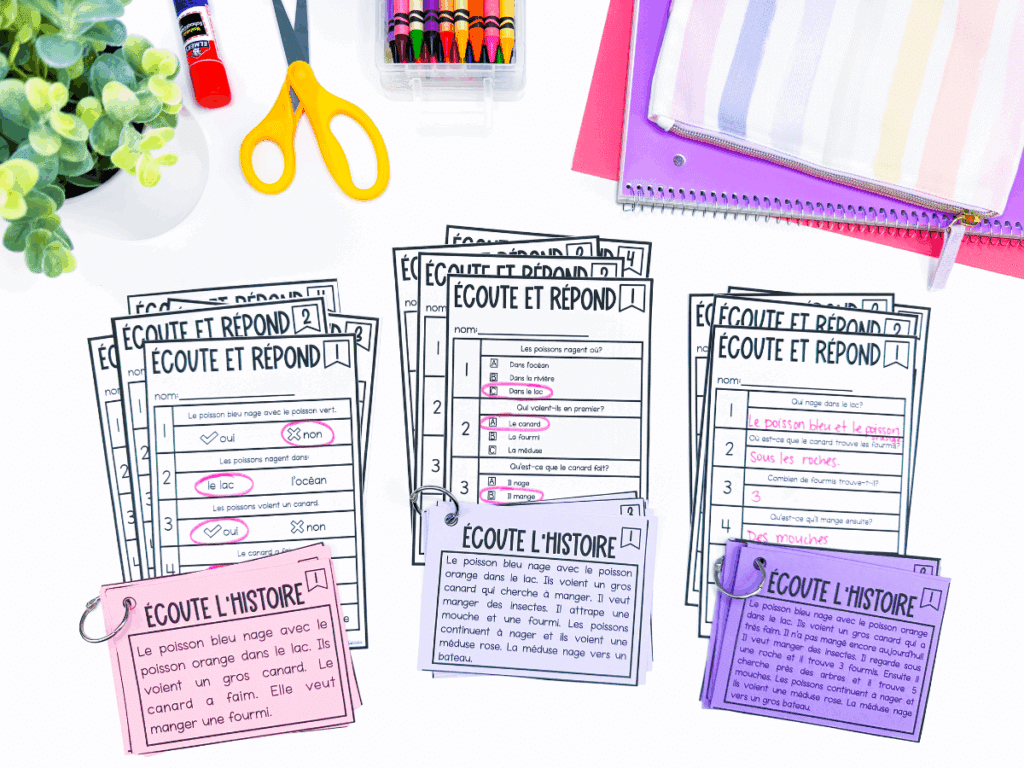 ÉCOUTE ET RÉPOND 2
ÉCOUTE ET RÉPOND 1
nom:
Le poisson bleu nage avec le poisson vert.
1
oui non
Les poissons nagent dans:
2
le lac l'océan
Les poissons voient un canard.
3
oui non
ÉCOUTE L'HISTOIRE 1
Le poisson bleu nage avec le
poisson orange dans le lac. Ils
voient un gros canard. Le
canard a faim. Elle veut
manger une fourmi.
4
ÉCOUTE ET RÉPOND 2
ÉCOUTE ET RÉPOND 1
nom:
Les poissons nagent où?
1
A Dans l'océan
B Dans la rivière
C Dans le lac
Qui voient-ils en premier?
2
A Le canard
B La fourmi
C La méduse
Qu'est-ce que le canard fait?
3
A Il nage
B Il mange
ÉCOUTE L'HISTOIRE 1
Le poisson bleu nage avec le poisson
orange dans le lac. Ils voient un gros
canard qui cherche à manger. Il veut
manger des insectes. Il attrape une
mouche et une fourmi. Les poissons
continuent à nager et ils voient une
méduse rose. La méduse nage vers un
bateau.
ÉCOUTE ET RÉPOND 2
ÉCOUTE ET RÉPOND 1
nom:
Qui nage dans le lac?
1
Le poisson bleu et le poisson
orange
Où est-ce que le canard trouve les fourmis?
2
Sous les roches.
Combien de fourmis trouve-t-il?
3
3
Qu'est-ce qu'il mange ensuite?
4
Des mouches
ÉCOUTE L'HISTOIRE 1
Le poisson bleu nage avec le poisson orange
dans le lac. Ils voient un gros canard qui a
très faim. Il n'a pas mangé encore aujourd'hui
Il veut manger des insectes. Il regarde sous
une roche et il trouve 3 fourmis. Ensuite il
cherche près des arbres et il trouve 5
mouches. Les poissons continuent à nager et
ils voient une méduse rose. La méduse nage
vers un gros bateau.